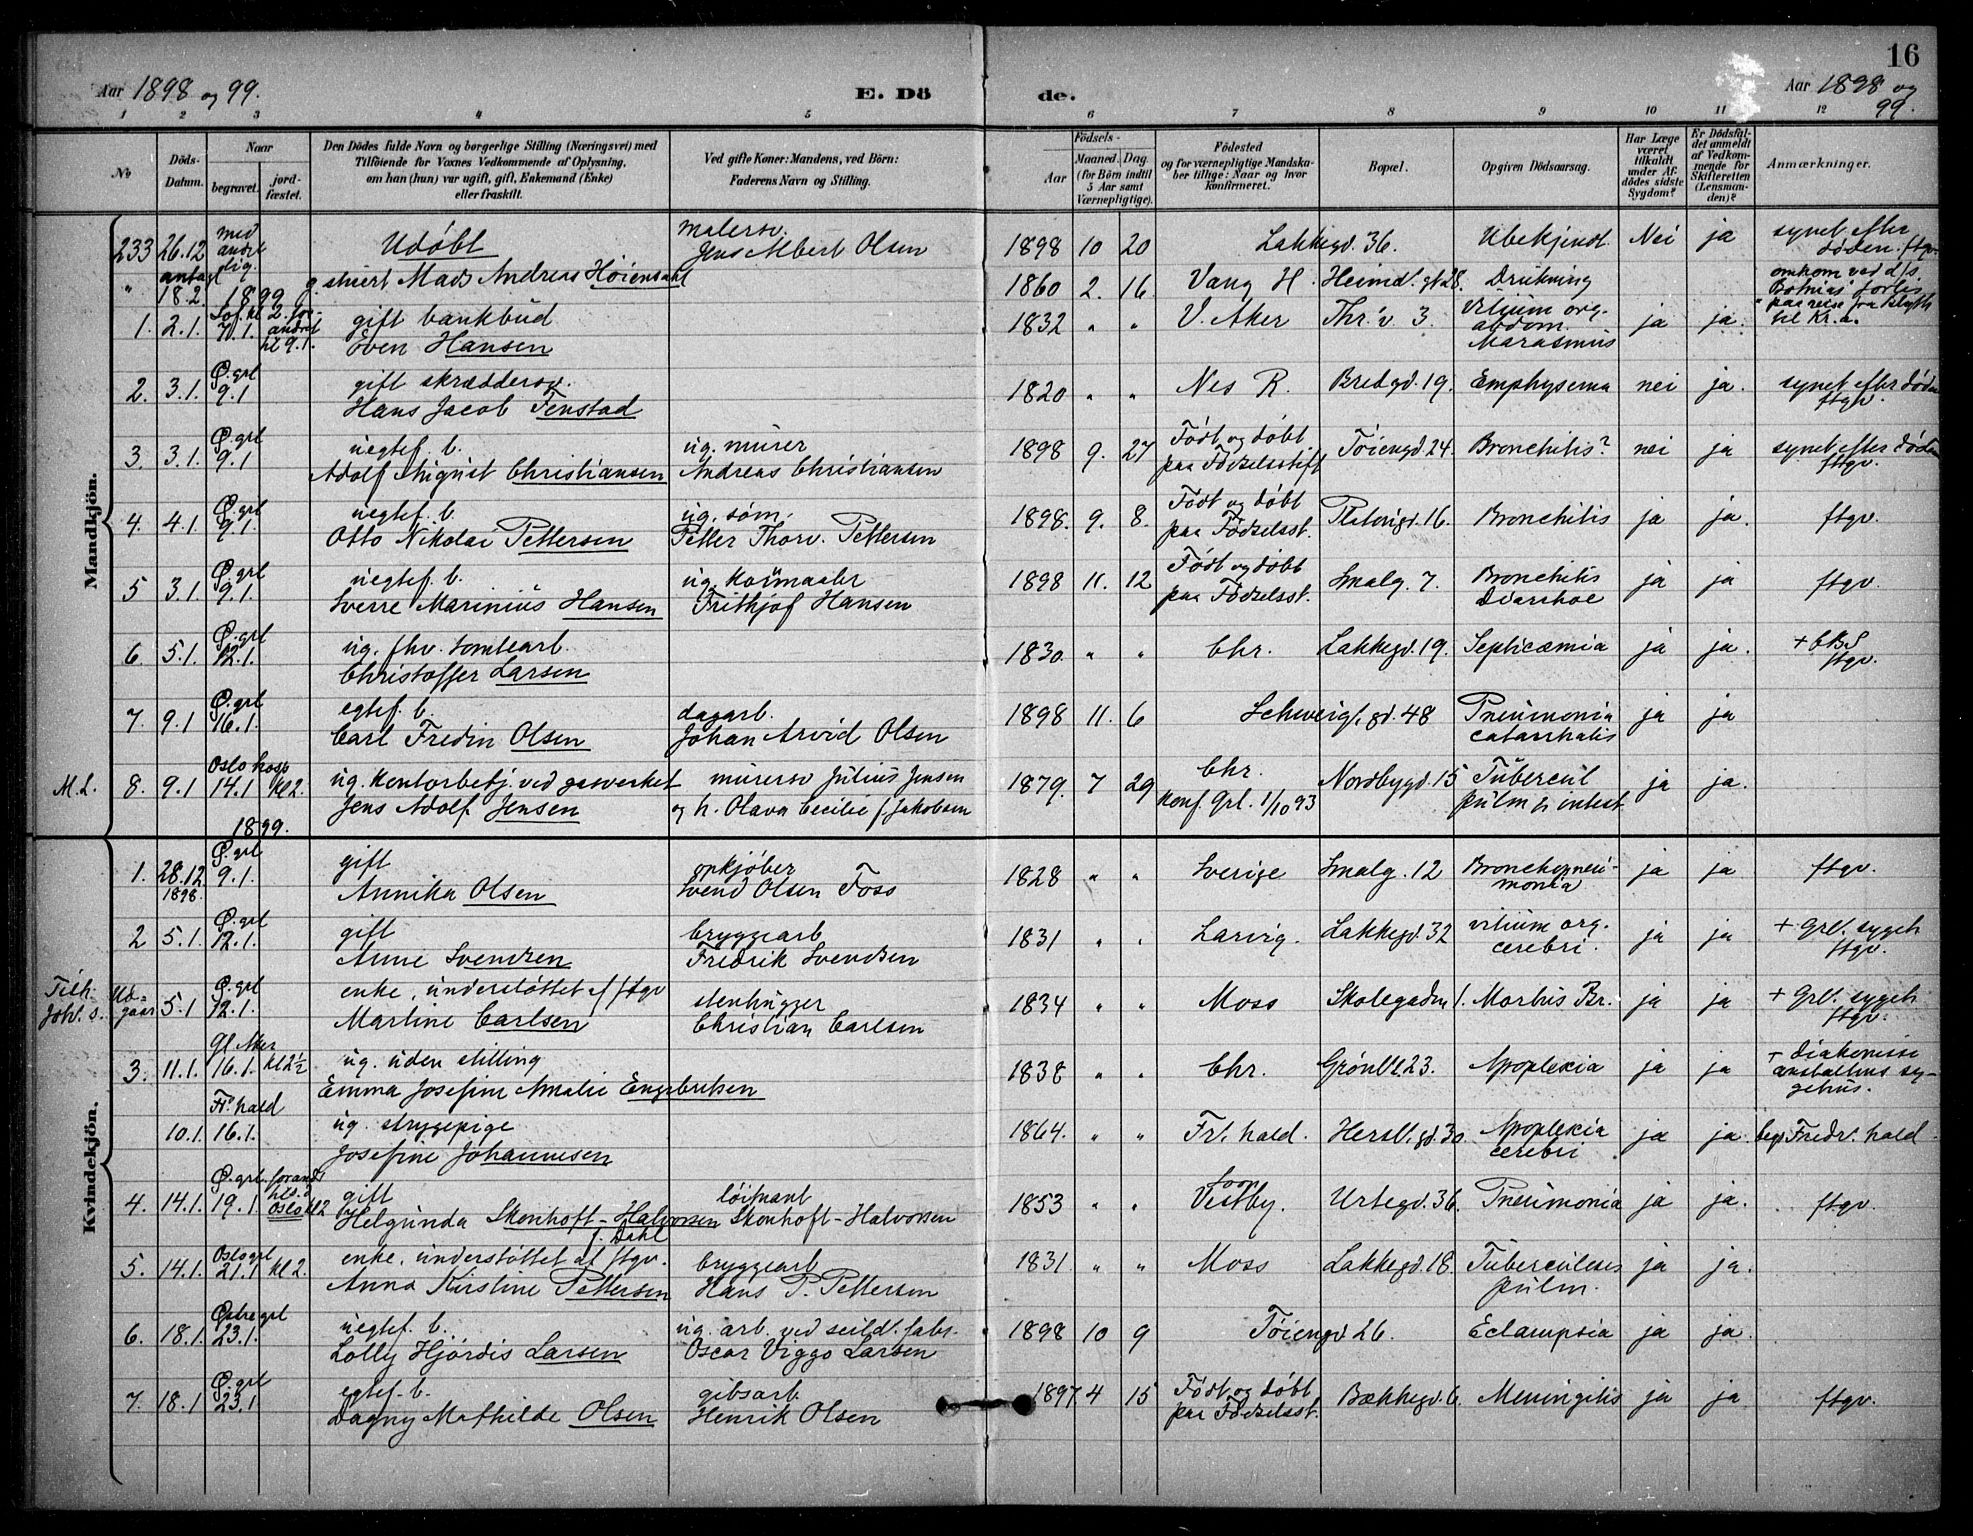 16
Aar 1898 og 99. E. Dö de. Aar 1898 og 99.
1 2 3 4 5 6 7 8 9 10 11 12
No Döds-Datum. Naar begravet. jord-fæstet. Den Dödes fulde Navn og borgerlige Stilling (Næringsvei) med Tilföiende for Voxnes Vedkommende af Oplysning, om han (hun) var ugift, gift, Enkemand (Enke) eller fraskilt. Ved gifte Koner: Mandens, ved Börn: Faderens Navn og Stilling. Födsels- Aar Maaned. Dag. (for Börn indtil 5 Aar samt Værnepligtige). Födested og for værnepligtige Mandskaber tillige: Naar og hvor konfirmeret. Bopæl. Opgiven Dödsaarsag. Har Læge været tilkaldt under Afdödes sidste Sygdom? Er Dödsfaldet anmeldt af Vedkommende for Skifteretten (Lensmanden)? Anmærkninger.
Mandkjön.
233 26.12 med andet lig. Udöbt malersv. Jens Albert Olsen 1898 10 20 Lakkegd. 36. Ubekjendt. Nei ja synet efter döden. ftgv.
" antagl 18.2. g. stuert Mads Andreas Höiendahl 1860 2. 16. Vang H. Heimdl. gt 28. Drukning omkom ved d/s Botnias forlis paa reise fra Blyth til Kr.a.
1899
1. 2.1. 7.1. gift bankbud Even Hansen 1832 " " V. Aker Thr. v. 3. Vitium org. abdom. Marasmus ja ja.
2. 3.1. Ø. grl 9.1 gift skræddersv. Hans Jacob Fenstad 1820 " " Nes R. Bredgd. 19. Emphysema nei ja. synet efter döden ftgv.
3. 3.1. Ø. grl 9.1 uegtef. b. Adolf August Christiansen ug. murer Andreas Christiansen 1898 9. 27 Födt og döbt paa Födselsstift Töiengd 24. Bronchitis? nei ja synet efter döden ftgv.
4. 4.1. Ø. grl 9.1. uegtef. b. Otto Nikolai Pettersen ug. söm. Petter Thorv. Pettersen 1898. 9. 8. Födt og döbt paa Födselsst. Platougd. 16. Bronchitis ja ja. ftgv.
5 3.1. Ø. grl 9.1. uegtef. b. Sverre Marinius Hansen ug. kornmaaler Frithjof Hansen 1898 11. 12 Födt og döbt paa Födselsst. Smalg. 7. Bronchitis Diarrhoe ja ja ftgv.
6. 5.1. Ø. grl 12.1. ug. fhv. tomtearb. Christoffer Larsen 1830. " " Chr. Lakkegd. 19. Septicæmia ja ja. + ftgv.
7. 9.1 Ø. grl 16.1. egtef. b. Carl Fredin Olsen dagarb. Johan Arvid Olsen 1898 11. 6 Schweigs. gd. 48 Pneumonia catarrhalis ja ja
M.L. 8. 9.1 Oslo hosp 14.1 kl 2. ug. kontorbetj. ved gasverket Jens Adolf Jensen murersv Julius Jensen og h. Olava Cecilie f. Jakobsen 1879. 7 29 Chr. konf. Grl. 1/10 93 Nordbygd. 15 Tubercul pulm & intest ja ja.
1899.
Kvindekjön.
1. 28.12 1898. Ø. grl 9.1. gift Annika Olsen opkjöber Svend Olsen Foss 1828 " " Sverige Smalg. 12 Bronchopneumonia ja ja ftgv.
2 5.1. Ø. grl 12.1. gift Anne Svendsen bryggearb Fredrik Svendsen 1831 " " Larvig. Lakkegd. 32 vitium org. cerebri. ja ja + Grl. sygeh ftgv.
Tilh. Joh. s. Udgaar 5.1 Ø. grl 12.1. enke, understöttet af ftgv Martine Carlsen stenhugger Christian Carlsen 1834 " " Moss Skolegaden 1. Morbus Br. ja ja + Grl. sygeh ftgv.
3. 11.1. Gl. Aker 16.1. kl 2½ ug. uden stilling Emma Josefine Amalie Engebretsen 1838 " " Chr. Grönl. 23. Apoplexia ja ja + diakonisse anstaltens sygehus.
10.1. Fr. hald 16.1. ug. strygepige Josefine Johannesen 1864. " " Fr. hald. Hersl. gd. 30 Apoplexia cerebri ja ja. begr. Fredr. hald.
4. 14.1. Ø. grl. 19.1. Oslo kl 2 gift Helgunda Skonhoft-Halvorsen f. Dahl löitnant Skonhoft-Halvorsen 1853 " " Soon Vestby. Urtegd. 36. Pneumonia ja ja. ftgv.
5. 14.1. Oslo grl 21.1 kl 2. enke, understöttet af ftgv. Anna Kirstine Pettersen bryggearb Hans P. Pettersen 1831. " " Moss Lakkegd. 18. Tuberculosis pulm. ja ja.
6. 18.1. Østre grl 23.1. uegtef. b. Lolly Hjördis Larsen ug. arb. ved seild. fabr. Oscar Viggo Larsen 1898 10 9 Töiengd 26. Eclampsia ja ja.
7. 18.1 Ø. grl 23.1 egtef. b. Dagny Mathilde Olsen gibsarb. Henrik Olsen 1897 4 15 Födt og döbt paa Födselsst. Bækkegd. 6. Meningitis ja ja ftgv.